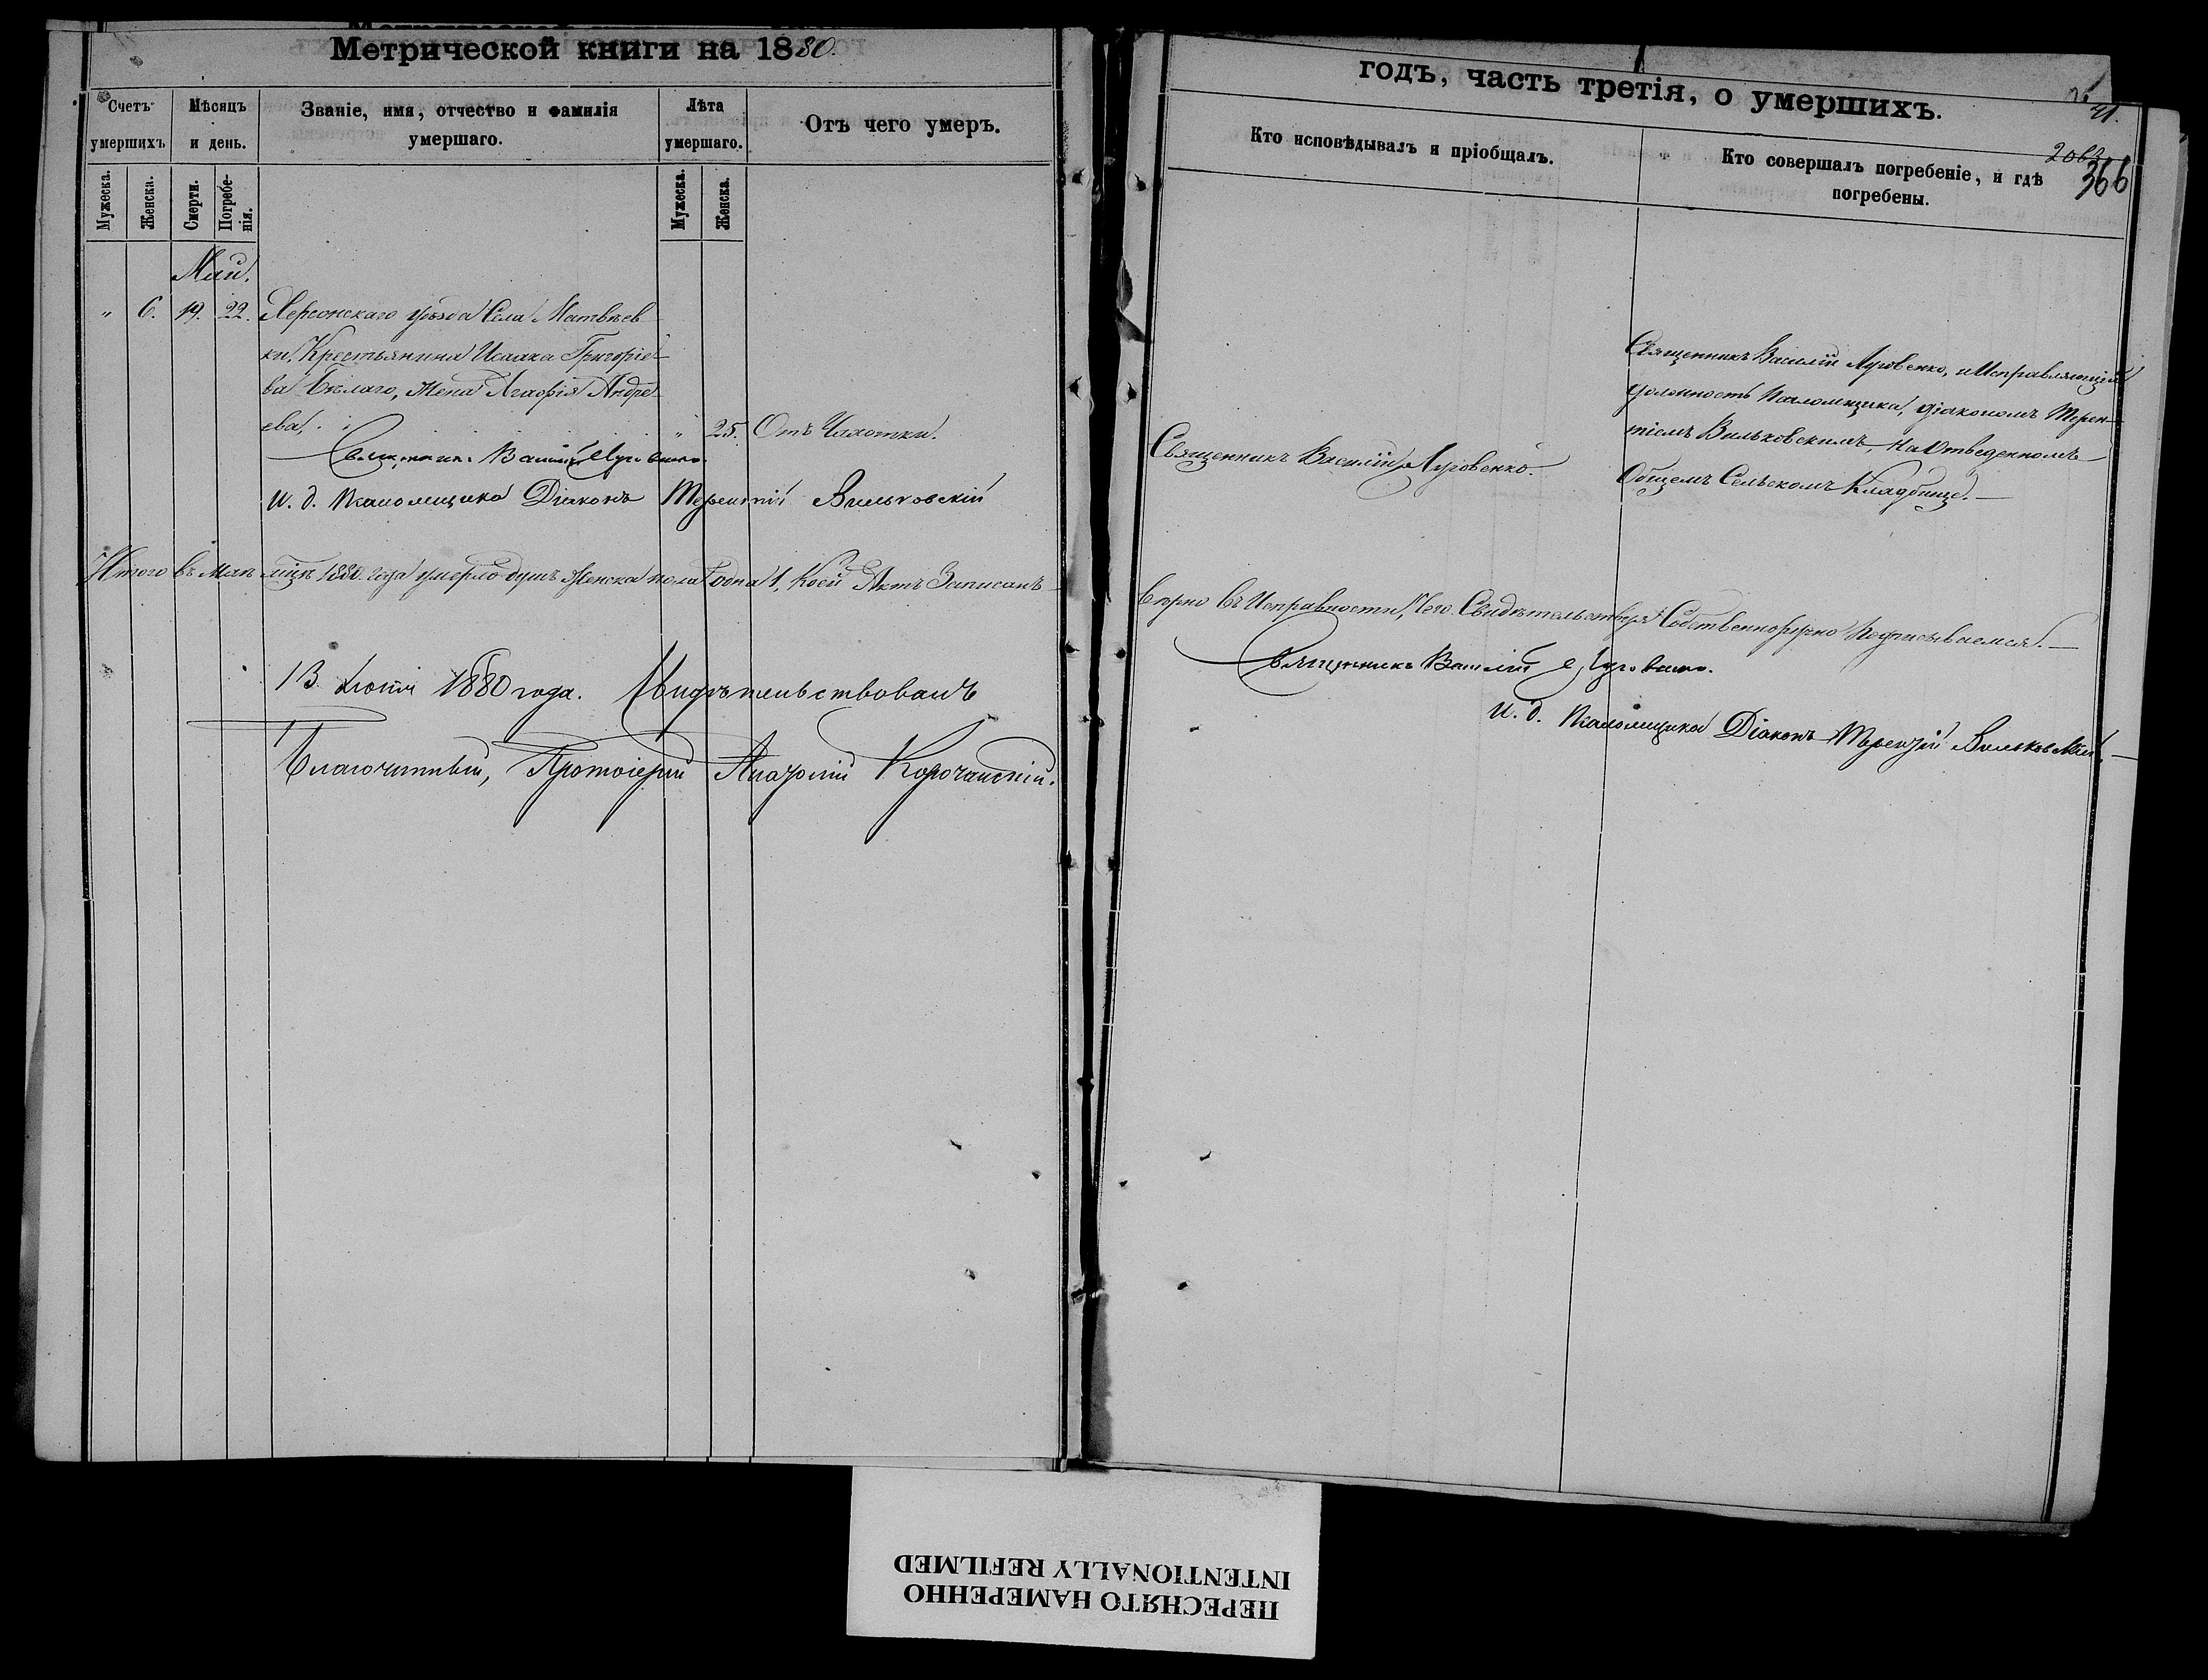 Метрической книги на 1880.
Счетъ умершихъ
Мѣсяцъ и день.
Званіе, имя, отчество и фамилія умершаго.
Лѣта умершаго.
Отъ чего умеръ.
Мужеска.
Женска.
Смерти.
Погребенія.
Мужеска.
Женска.
Май.
" 6. 19. 22. Херсонскаго уѣзда Села Матвѣев
ки, Крестьянина Исаака Григоріе
ва Бѣлаго, Жена Агафія Андре
ева, " 25. Отъ Чахотки.
Священникъ Василій Луговенко
И. д. Псаломщика Діаконъ Терентій Вильковскій
Итого въ Маѣ мцѣ 1880. года умерло душъ женска пола одна 1, коей Актъ Записанъ
13 Іюня 1880 года. Свидѣтельствовалъ
Благочинный, Протоіерей Корочанскій.
годъ, часть третія, о умершихъ.
41.
366
Кто исповѣдывалъ и пріобщалъ.
Кто совершалъ погребеніе, и гдѣ
погребены.
Священникъ Василій Луговенко.
Священникъ Василій Луговенко, и Исправляющій
должность Псаломщика, діакономъ Терен-
тіемъ Вильковскимъ, на Отведенномъ
Общемъ Сельскомъ Кладбище.—
вѣрно въ Исправности, Чего Свидѣтельствуя Собственноручно Подписываемся.—
Священникъ Василій Луговенко.
И. д. Псаломщика Діаконъ Терентій Вильковскій.—
ПЕРЕСНЯТО НАМЕРЕННО
INTENTIONALLY REFILMED